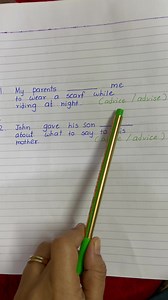 1 My parents ______ me
to wear a scarf while
riding at night. (advice / advise)
2 John gave his son ______
about what to say to his
mother. (advice / advise)